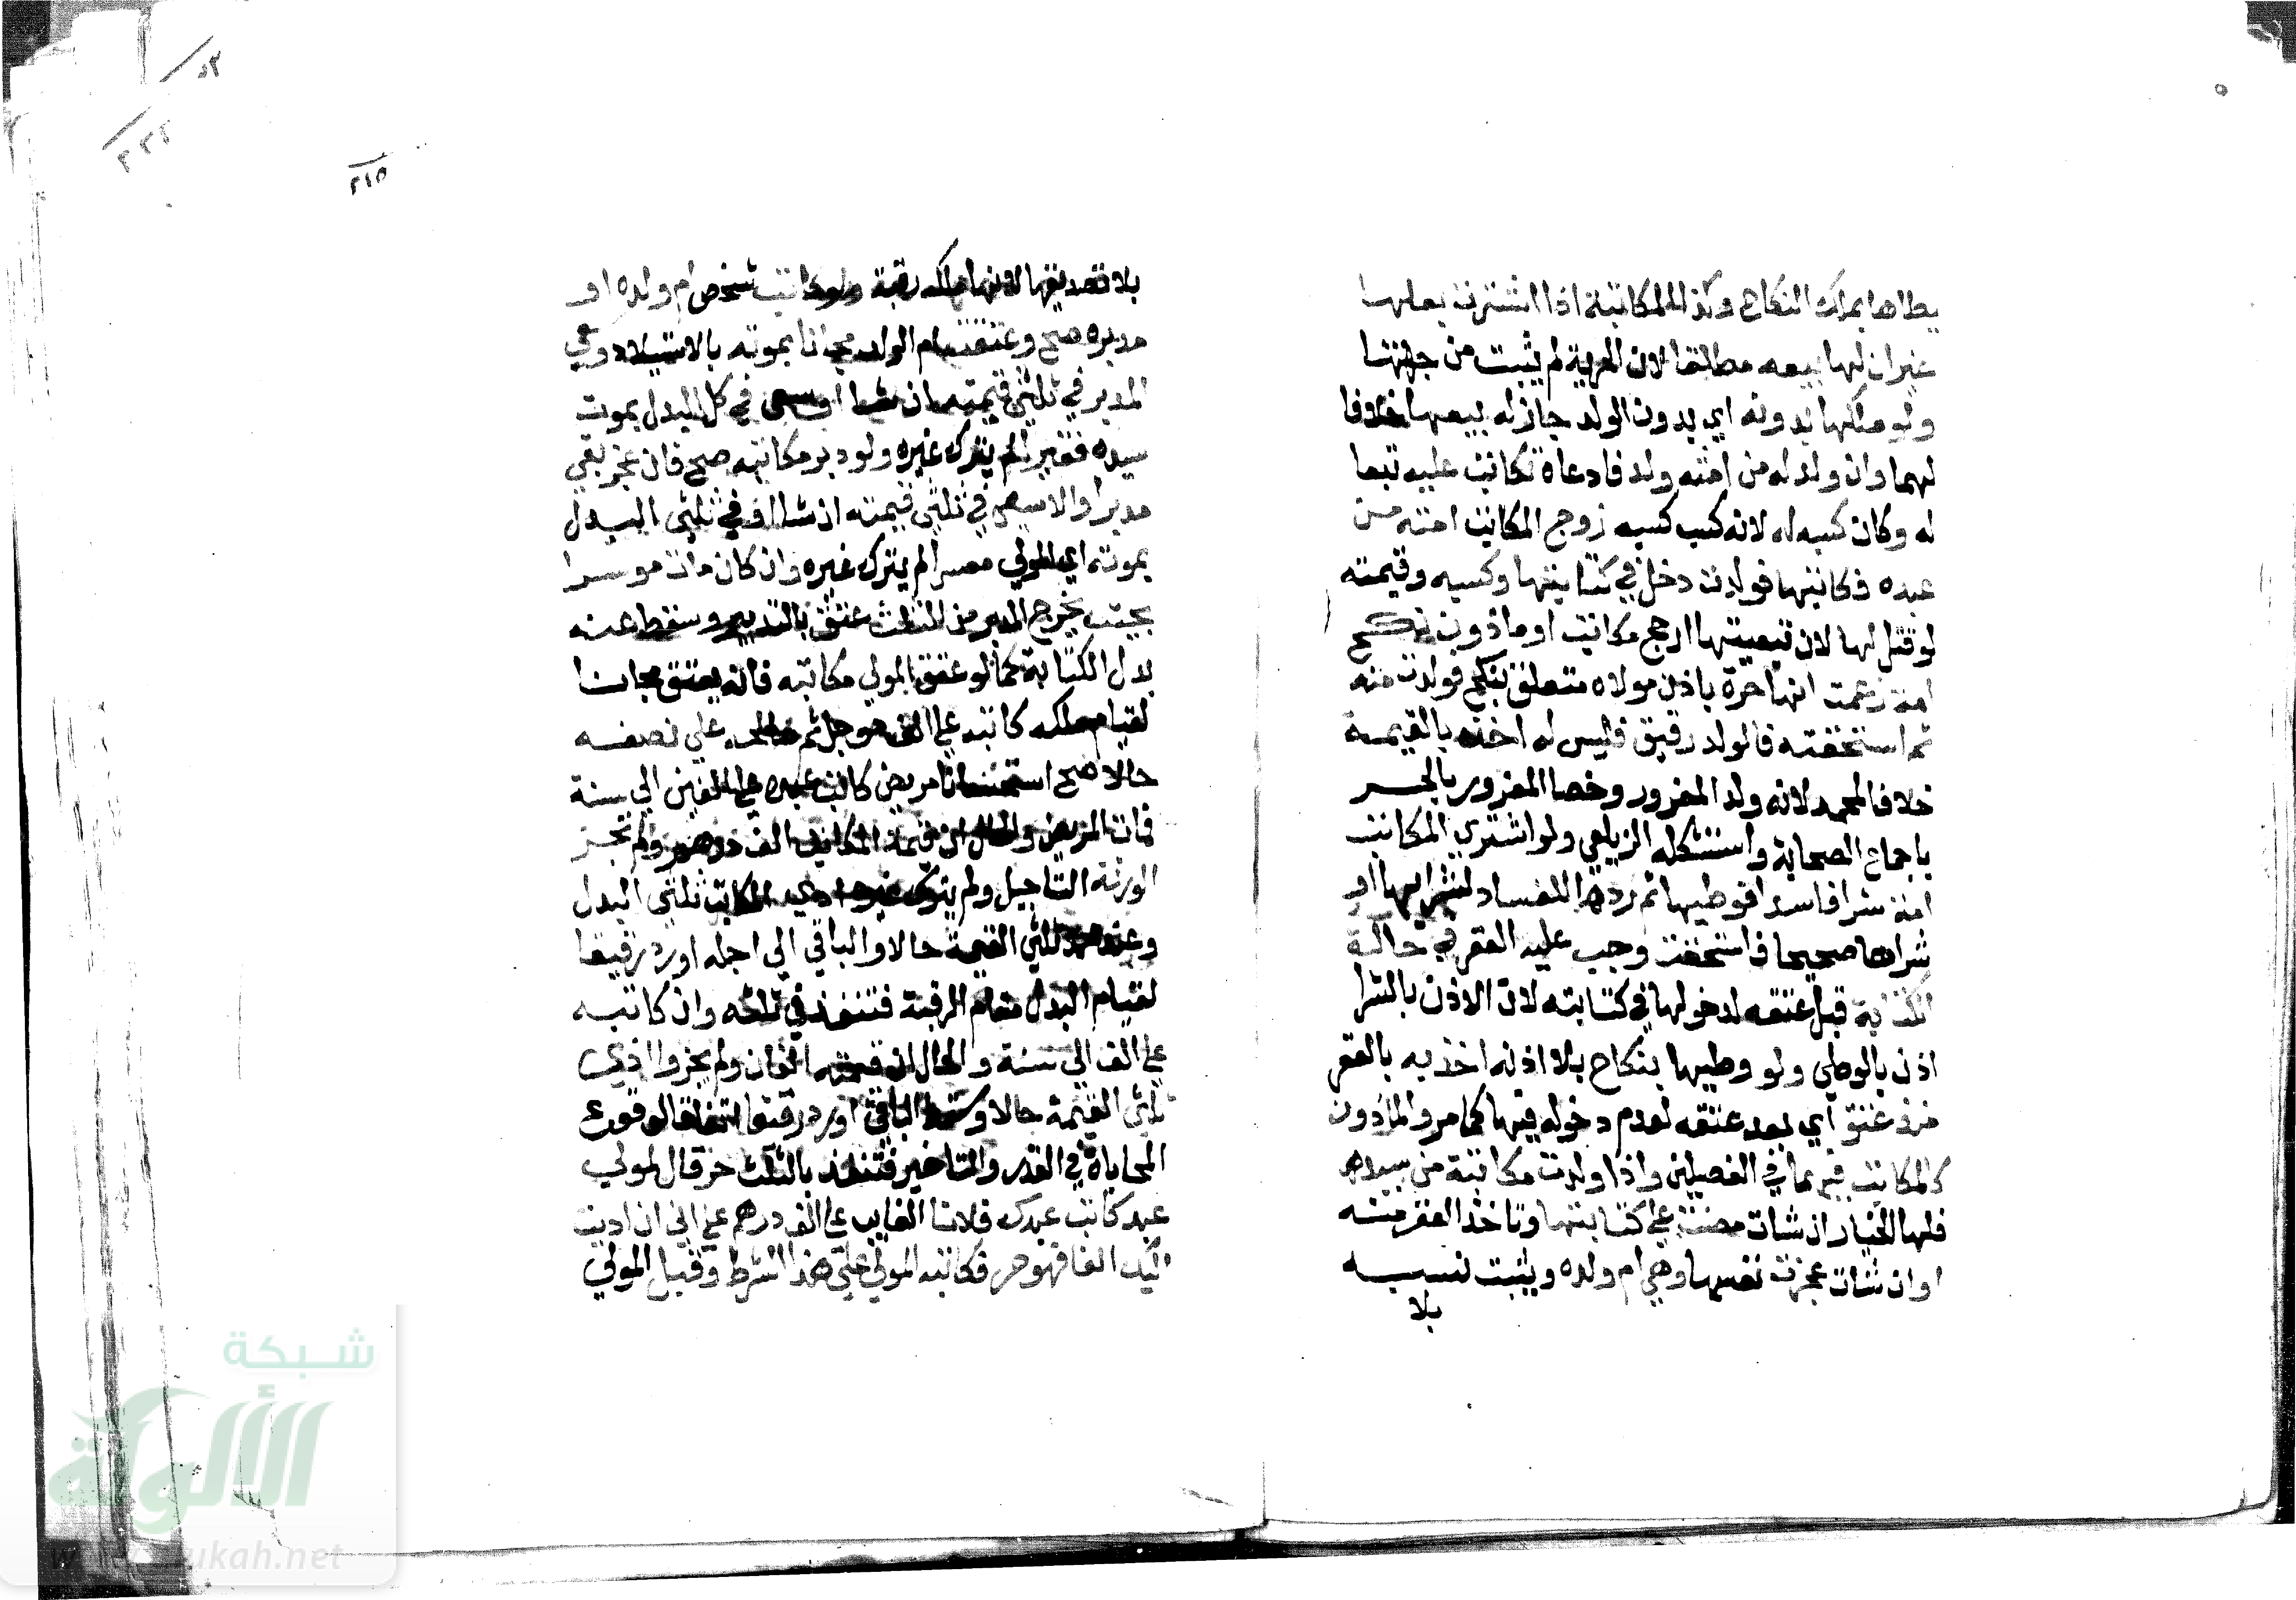 يطاها بملك النكاح وكذا المكاتبة اذا اشترت بعلها
غيران لها بيعه مطلقا لان الحرية لم يثبت من جهتها
ولو ملكها بدونه اي بدون الولد جاز له بيعها خلافا
لهما وان ولد له من امته ولد فادعاه تكاتب عليه تبعا
له وكان كسبه له لانه كسب كسبه زوج المكاتب امته من
عبده فكاتبها فولدت دخل في كتابتها وكسبه وقيمته
لو قتل لها لان تبعيتها ارجح مكاتب او ماذون نكح
امة زعمت انها حرة باذن مولاه متعلق بنكح فولدت منه
ثم استحقت فالولد رقيق فليس له اخذه بالقيمة
خلافا لمحمد لانه ولد المغرور وخصا المغرور بالحر
باجماع الصحابة واستشكله الزيلعي ولو اشتري المكاتب
امة شرا فاسدا فوطيها ثم ردها للفساد لشرايها او
شراها صحيحا فاستحقت وجب عليه العقر في حالة
الكتابة قبل عتقه لدخولها في كتابته لان الاذن بالشرا
اذن بالوطي ولو وطيها بنكاح بلا اذنه اخذ به بالعقر
منذ عتق اي بعد عتقه لعدم دخوله فيها كما مر والماذون
كالمكاتب فيهما في الفصلين واذا ولدت مكاتبة من سيدها
فلها الخيار ان شات مضت علي كتابتها وتاخذ العقر منه
او ان شات عجزت نفسها وهي ام ولده ويثبت نسبه
بلا
٢١٥
بلا تصديقها لانها ملكه رقبة ولو كاتب شخص ام ولده او
مدبره صح وعتقت ام الولد مجانا بموته بالاستيلاد وسعي
المدبر في ثلثي قيمته ان شا او سعي في كل البدل بموت
سيده فقيرا لم يترك غيره ولو دبر مكاتبه صح فان عجز بقي
مدبرا والا سعي في ثلثي قيمته ان شا او في ثلثي البدل
بموته اي المولي معسرا لم يترك غيره وان كان مات موسرا
بحيث يخرج المدبر من الثلث عتق بالتدبير وسقط عنه
بدل الكتابة كما لو عتق المولي مكاتبه فانه يعتق مجانا
لقيام ملكه كاتبه علي الف موجل ثم صالحه علي نصفه
حالا صح استحسانا مريض كاتب عبده علي الفين الي سنة
فمات المريض والحال ان قيمة المكاتب الف درهم ولم تجز
الورثة التاجيل ولم يترك غيره ادي المكاتب ثلثي البدل
وعند محمد ثلثي القيمة حالا والباقي الي اجله او رد رقيقا
لقيام البدل مقام الرقبة فتنفذ في ثلثه وان كاتبه
علي الف الي سنة والحال ان قيمته الفان ولم يجيزوا ادي
ثلثي القيمة حالا وسقط الباقي او رد رقيقا اتفاقا لوقوع
المحاباة في القدر والتاخير فتنفذ بالثلث حر قال لمولي
عبد كاتب عبدك فلانا الغايب علي الف درهم علي اني ان اديت
اليك الفا فهو حر فكاتبه المولي علي هذا الشرط وقبل المولي
شبكة
الألوكة